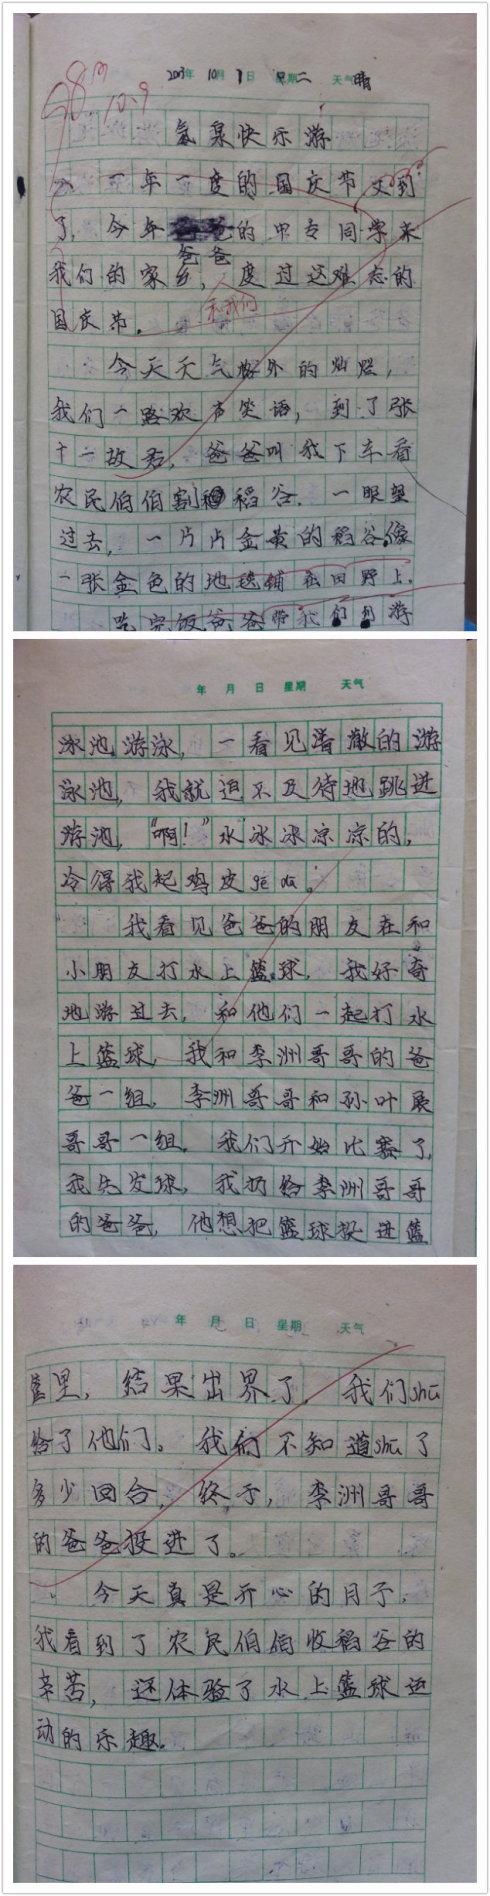 98分
10.9
2013年 10月 1日 星期二 天气晴
氡泉快乐游
一年一度的国庆节又到
了,今年爸爸的中专同学来
我们的家乡,度过这难忘的
和我们
国庆节。
今天天气格外的灿烂,
我们一路欢声笑语,到了张
十一故居,爸爸叫我下车看
农民伯伯割稻谷.一眼望
过去,一片片金黄的稻谷像
一张金色的地毯铺在田野上.
吃完饭爸爸带我们到游
年 月 日 星期 天气
泳池游泳,一看见清澈的游
泳池,我就迫不及待地跳进
游池,“啊!”水冰冰凉凉的,
冷得我起鸡皮gē da。
我看见爸爸的朋友在和
小朋友打水上篮球,我好奇
地游过去,和他们一起打水
上篮球,我和李洲哥哥的爸
爸一组,李洲哥哥和孙叶晨
哥哥一组。我们开始比赛了,
我先发球,我扔给李洲哥哥
的爸爸,他想把篮球投进篮
年 月 日 星期 天气
筐里,结果出界了,我们shū
给了他们。我们不知道shū了
多少回合,终于,李洲哥哥
的爸爸投进了。
今天真是开心的日子,
我看到了农民伯伯收稻谷的
辛苦,还体验了水上篮球运
动的乐趣。